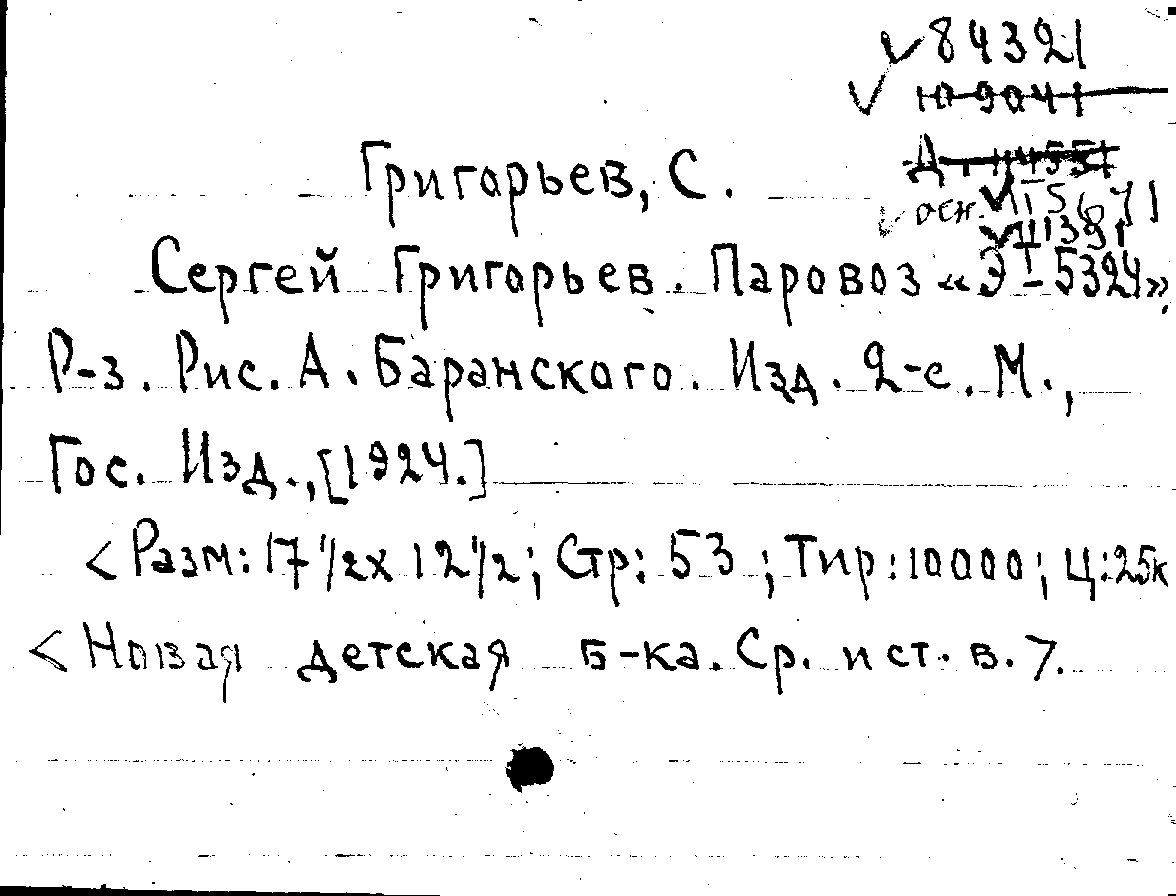 84321
Григорьев, С.
осн.
Сергей Григорьев. Паровоз «Э I-5324»,
Р-з. Рис. А. Баранского. Изд. 2-е. М.,
Гос. Изд., [1924.]
<Разм: 17 1/2 х 12 1/2; Стр: 53; Тир: 10000; Ц: 25к
<Новая детская б-ка. Ср. и ст. в. 7.